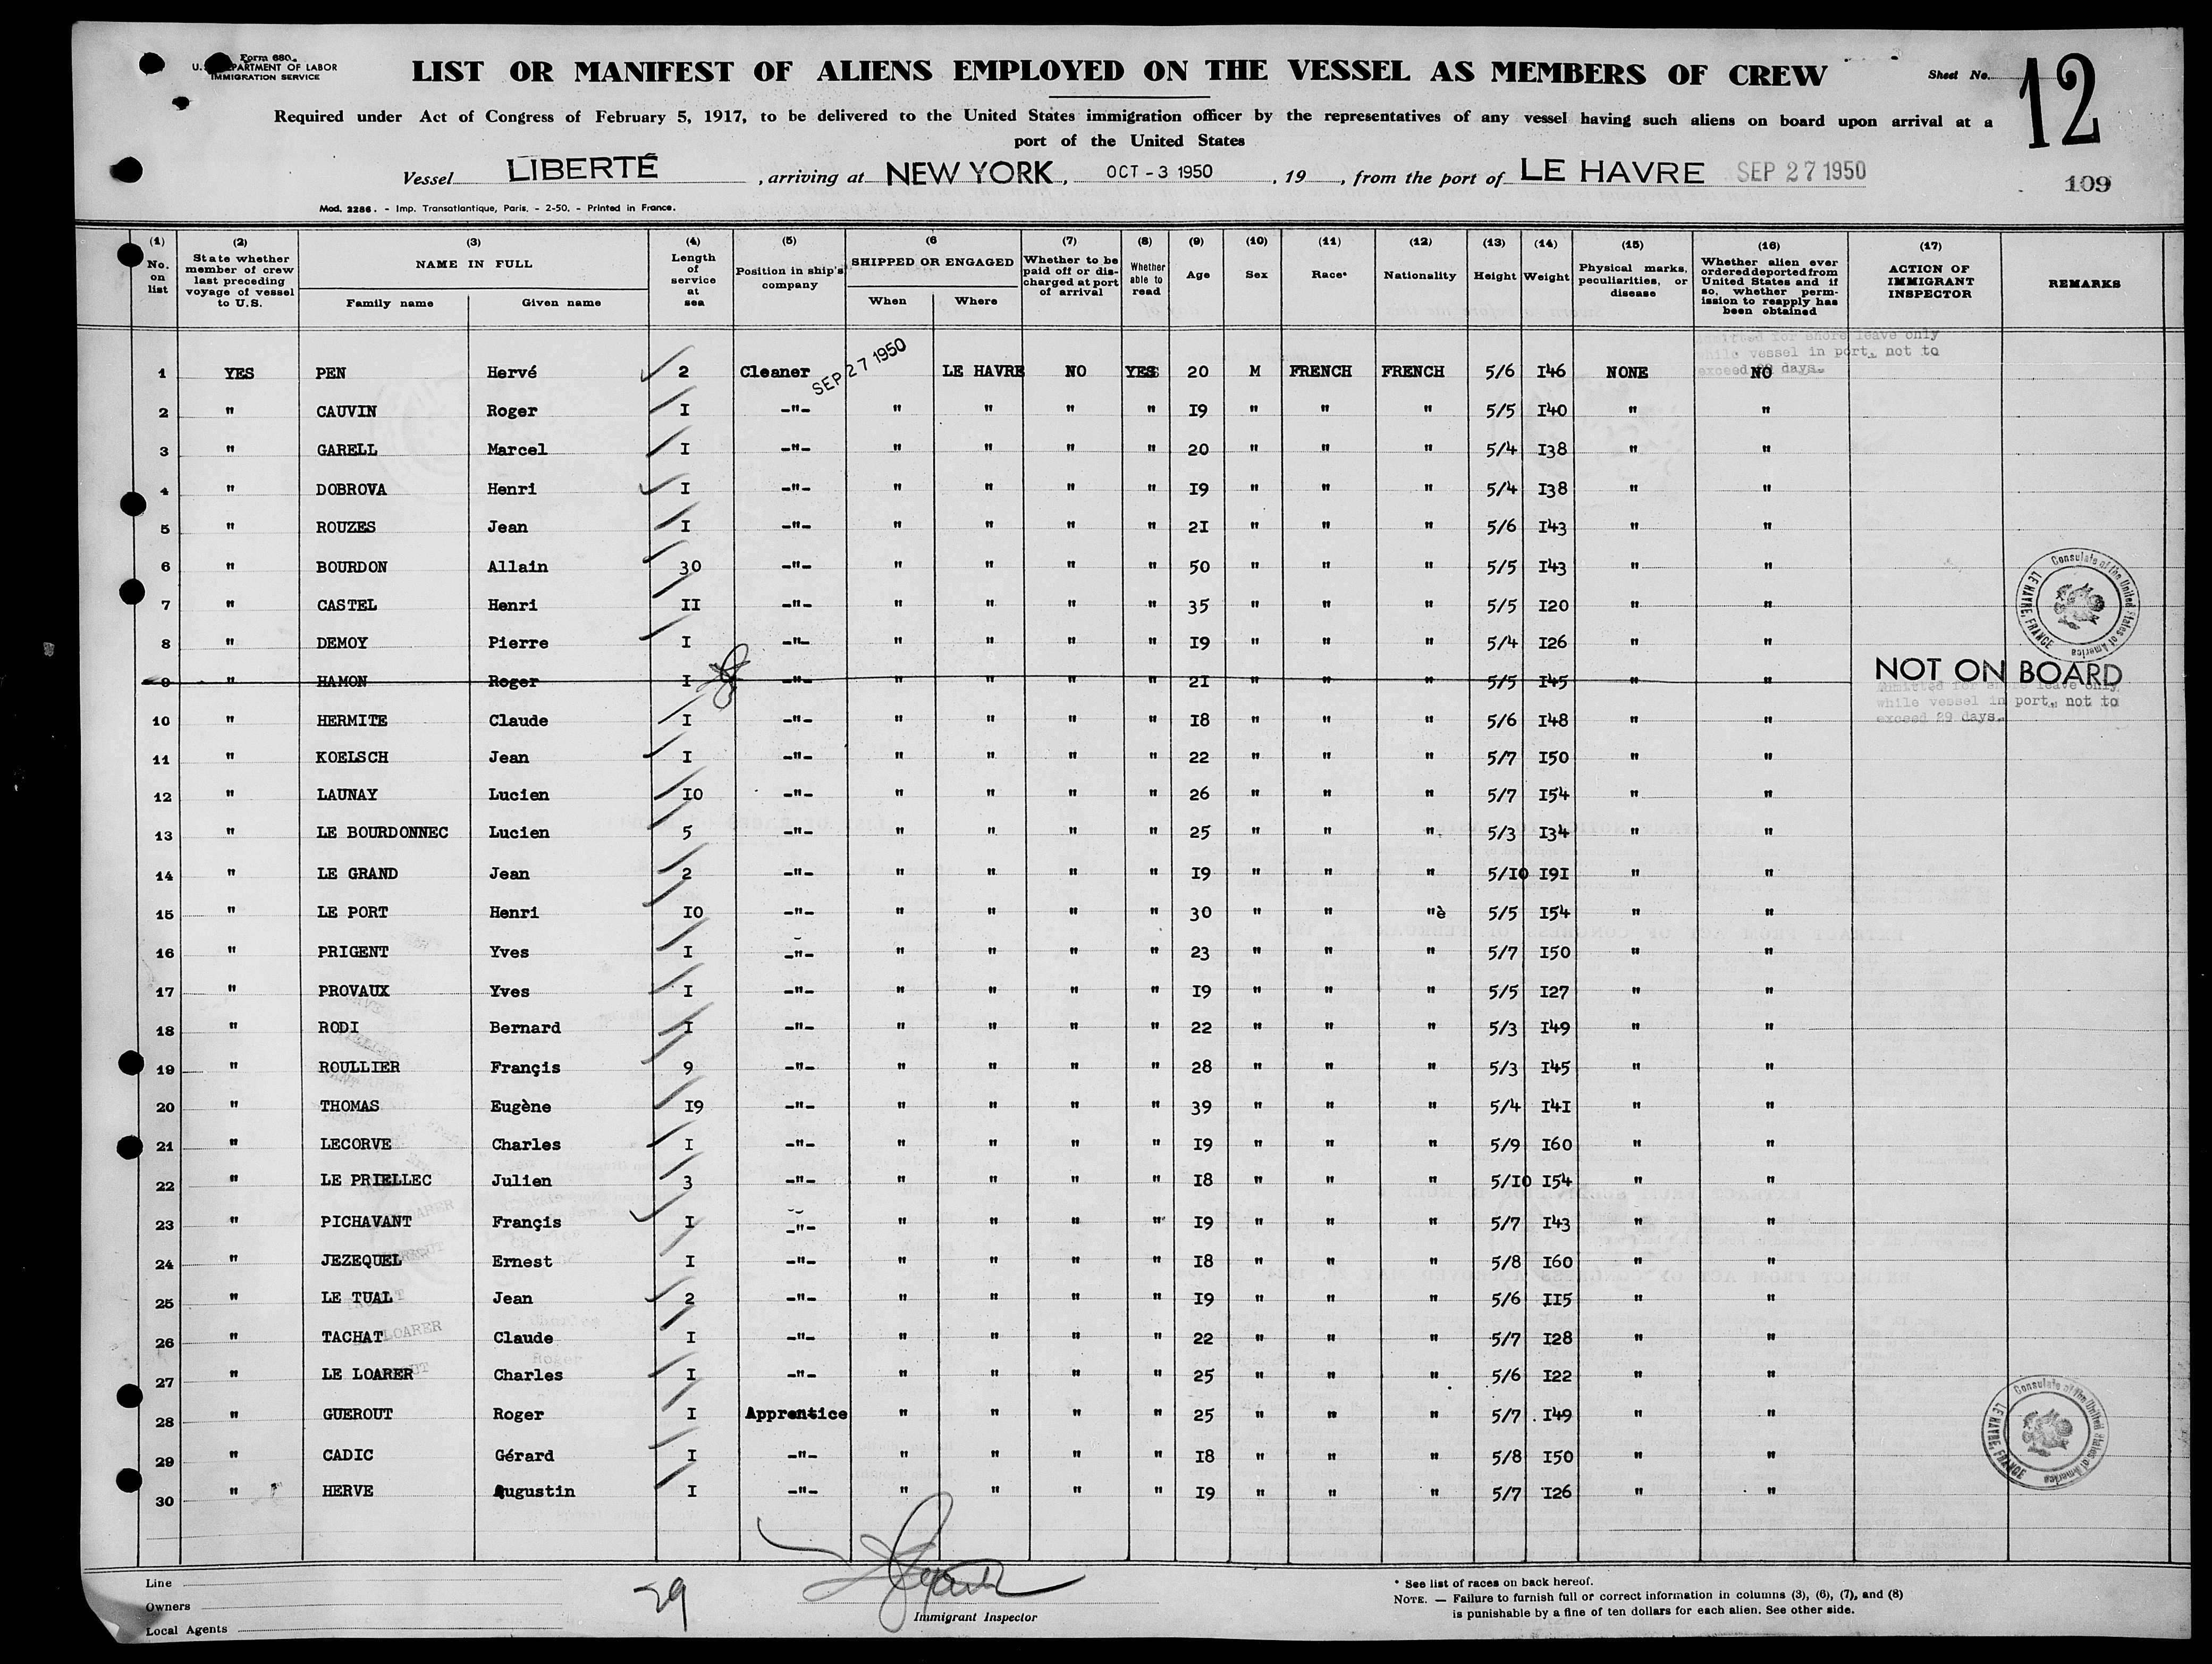 Form 680
U.S. DEPARTMENT OF LABOR
IMMIGRATION SERVICE
LIST OR MANIFEST OF ALIENS EMPLOYED ON THE VESSEL AS MEMBERS OF CREW
Sheet No. 12
Required under Act of Congress of February 5, 1917, to be delivered to the United States immigration officer by the representatives of any vessel having such aliens on board upon arrival at a
port of the United States
Vessel LIBERTÉ, arriving at NEW YORK, OCT - 3 1950, 19 , from the port of LE HAVRE SEP 27 1950
109
Mod. 2286. - Imp. Transatlantique, Paris. - 2-50. - Printed in France.
(1) No. on list
(2) State whether member of crew last preceding voyage of vessel to U.S.
(3) NAME IN FULL Family name Given name
(4) Length of service at sea
(5) Position in ship's company
(6 SHIPPED OR ENGAGED When Where
(7) Whether to be paid off or discharged at port of arrival
(8) Whether able to read
(9) Age
(10) Sex
(11) Race*
(12) Nationality
(13) Height
(14) Weight
(15) Physical marks, peculiarities, or disease
(16) Whether alien ever ordered deported from United States and if so, whether permission to reapply has been obtained
(17) ACTION OF IMMIGRANT INSPECTOR
REMARKS
Admitted for shore leave only
while vessel in port, not to
exceed 29 days.
1 YES PEN Hervé 2 Cleaner SEP 27 1950 LE HAVRE NO YES 20 M FRENCH FRENCH 5/6 I46 NONE NO
2 " CAUVIN Roger I -"- " " " " I9 " " " 5/5 I40 " "
3 " GARELL Marcel I -"- " " " " 20 " " " 5/4 I38 " "
4 " DOBROVA Henri I -"- " " " " I9 " " " 5/4 I38 " "
5 " ROUZES Jean I -"- " " " " 2I " " " 5/6 I43 " "
6 " BOURDON Allain 30 -"- " " " " 50 " " " 5/5 I43 " "
7 " CASTEL Henri II -"- " " " " 35 " " " 5/5 I20 " "
8 " DEMOY Pierre I -"- " " " " I9 " " " 5/4 I26 " "
9 " HAMON Roger I -"- " " " " 2I " " " 5/5 I45 " " NOT ON BOARD
Admitted for shore leave only
while vessel in port, not to
exceed 29 days.
10 " HERMITE Claude I -"- " " " " I8 " " " 5/6 I48 " "
11 " KOELSCH Jean I -"- " " " " 22 " " " 5/7 I50 " "
12 " LAUNAY Lucien IO -"- " " " " 26 " " " 5/7 I54 " "
13 " LE BOURDONNEC Lucien 5 -"- " " " " 25 " " " 5/3 I34 " "
14 " LE GRAND Jean 2 -"- " " " " I9 " " " 5/IO I9I " "
15 " LE PORT Henri IO -"- " " " " 30 " " "è 5/5 I54 " "
16 " PRIGENT Yves I -"- " " " " 23 " " " 5/7 I50 " "
17 " PROVAUX Yves I -"- " " " " I9 " " " 5/5 I27 " "
18 " RODI Bernard I -"- " " " " 22 " " " 5/3 I49 " "
19 " ROULLIER Françis 9 -"- " " " " 28 " " " 5/3 I45 " "
20 " THOMAS Eugène I9 -"- " " " " 39 " " " 5/4 I4I " "
21 " LECORVE Charles I -"- " " " " I9 " " " 5/9 I60 " "
22 " LE PRIELLEC Julien 3 -"- " " " " I8 " " " 5/IO I54 " "
23 " PICHAVANT Françis I -"- " " " " I9 " " " 5/7 I43 " "
24 " JEZEQUEL Ernest I -"- " " " " I8 " " " 5/8 I60 " "
25 " LE TUAL Jean 2 -"- " " " " I9 " " " 5/6 II5 " "
26 " TACHAT Claude I -"- " " " " 22 " " " 5/7 I28 " "
27 " LE LOARER Charles I -"- " " " " 25 " " " 5/6 I22 " "
28 " GUEROUT Roger I Apprentice " " " " 25 " " " 5/7 I49 " "
29 " CADIC Gérard I -"- " " " " I8 " " " 5/8 I50 " "
30 " HERVE Augustin I -"- " " " " I9 " " " 5/7 I26 " "
Consulate of the United States of America LE HAVRE, FRANCE
Consulate of the United States of America LE HAVRE, FRANCE
Line
Owners
Local Agents
29
Immigrant Inspector
* See list of races on back hereof.
NOTE. — Failure to furnish full or correct information in columns (3), (6), (7), and (8)
is punishable by a fine of ten dollars for each alien. See other side.